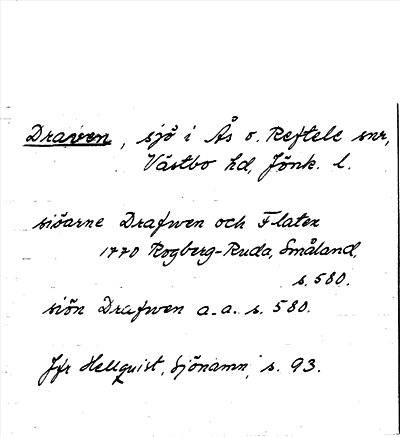 Draven, sjö i Ås o. Reftele snr,
Västbo hd, Jönk. l.
siöarne Drafwen och Flaten
1770 Rogberg-Ruda, Småland,
s. 580.
siön Drafwen a.a. s. 580.
Jfr Hellquist, Sjönamn, s. 93.